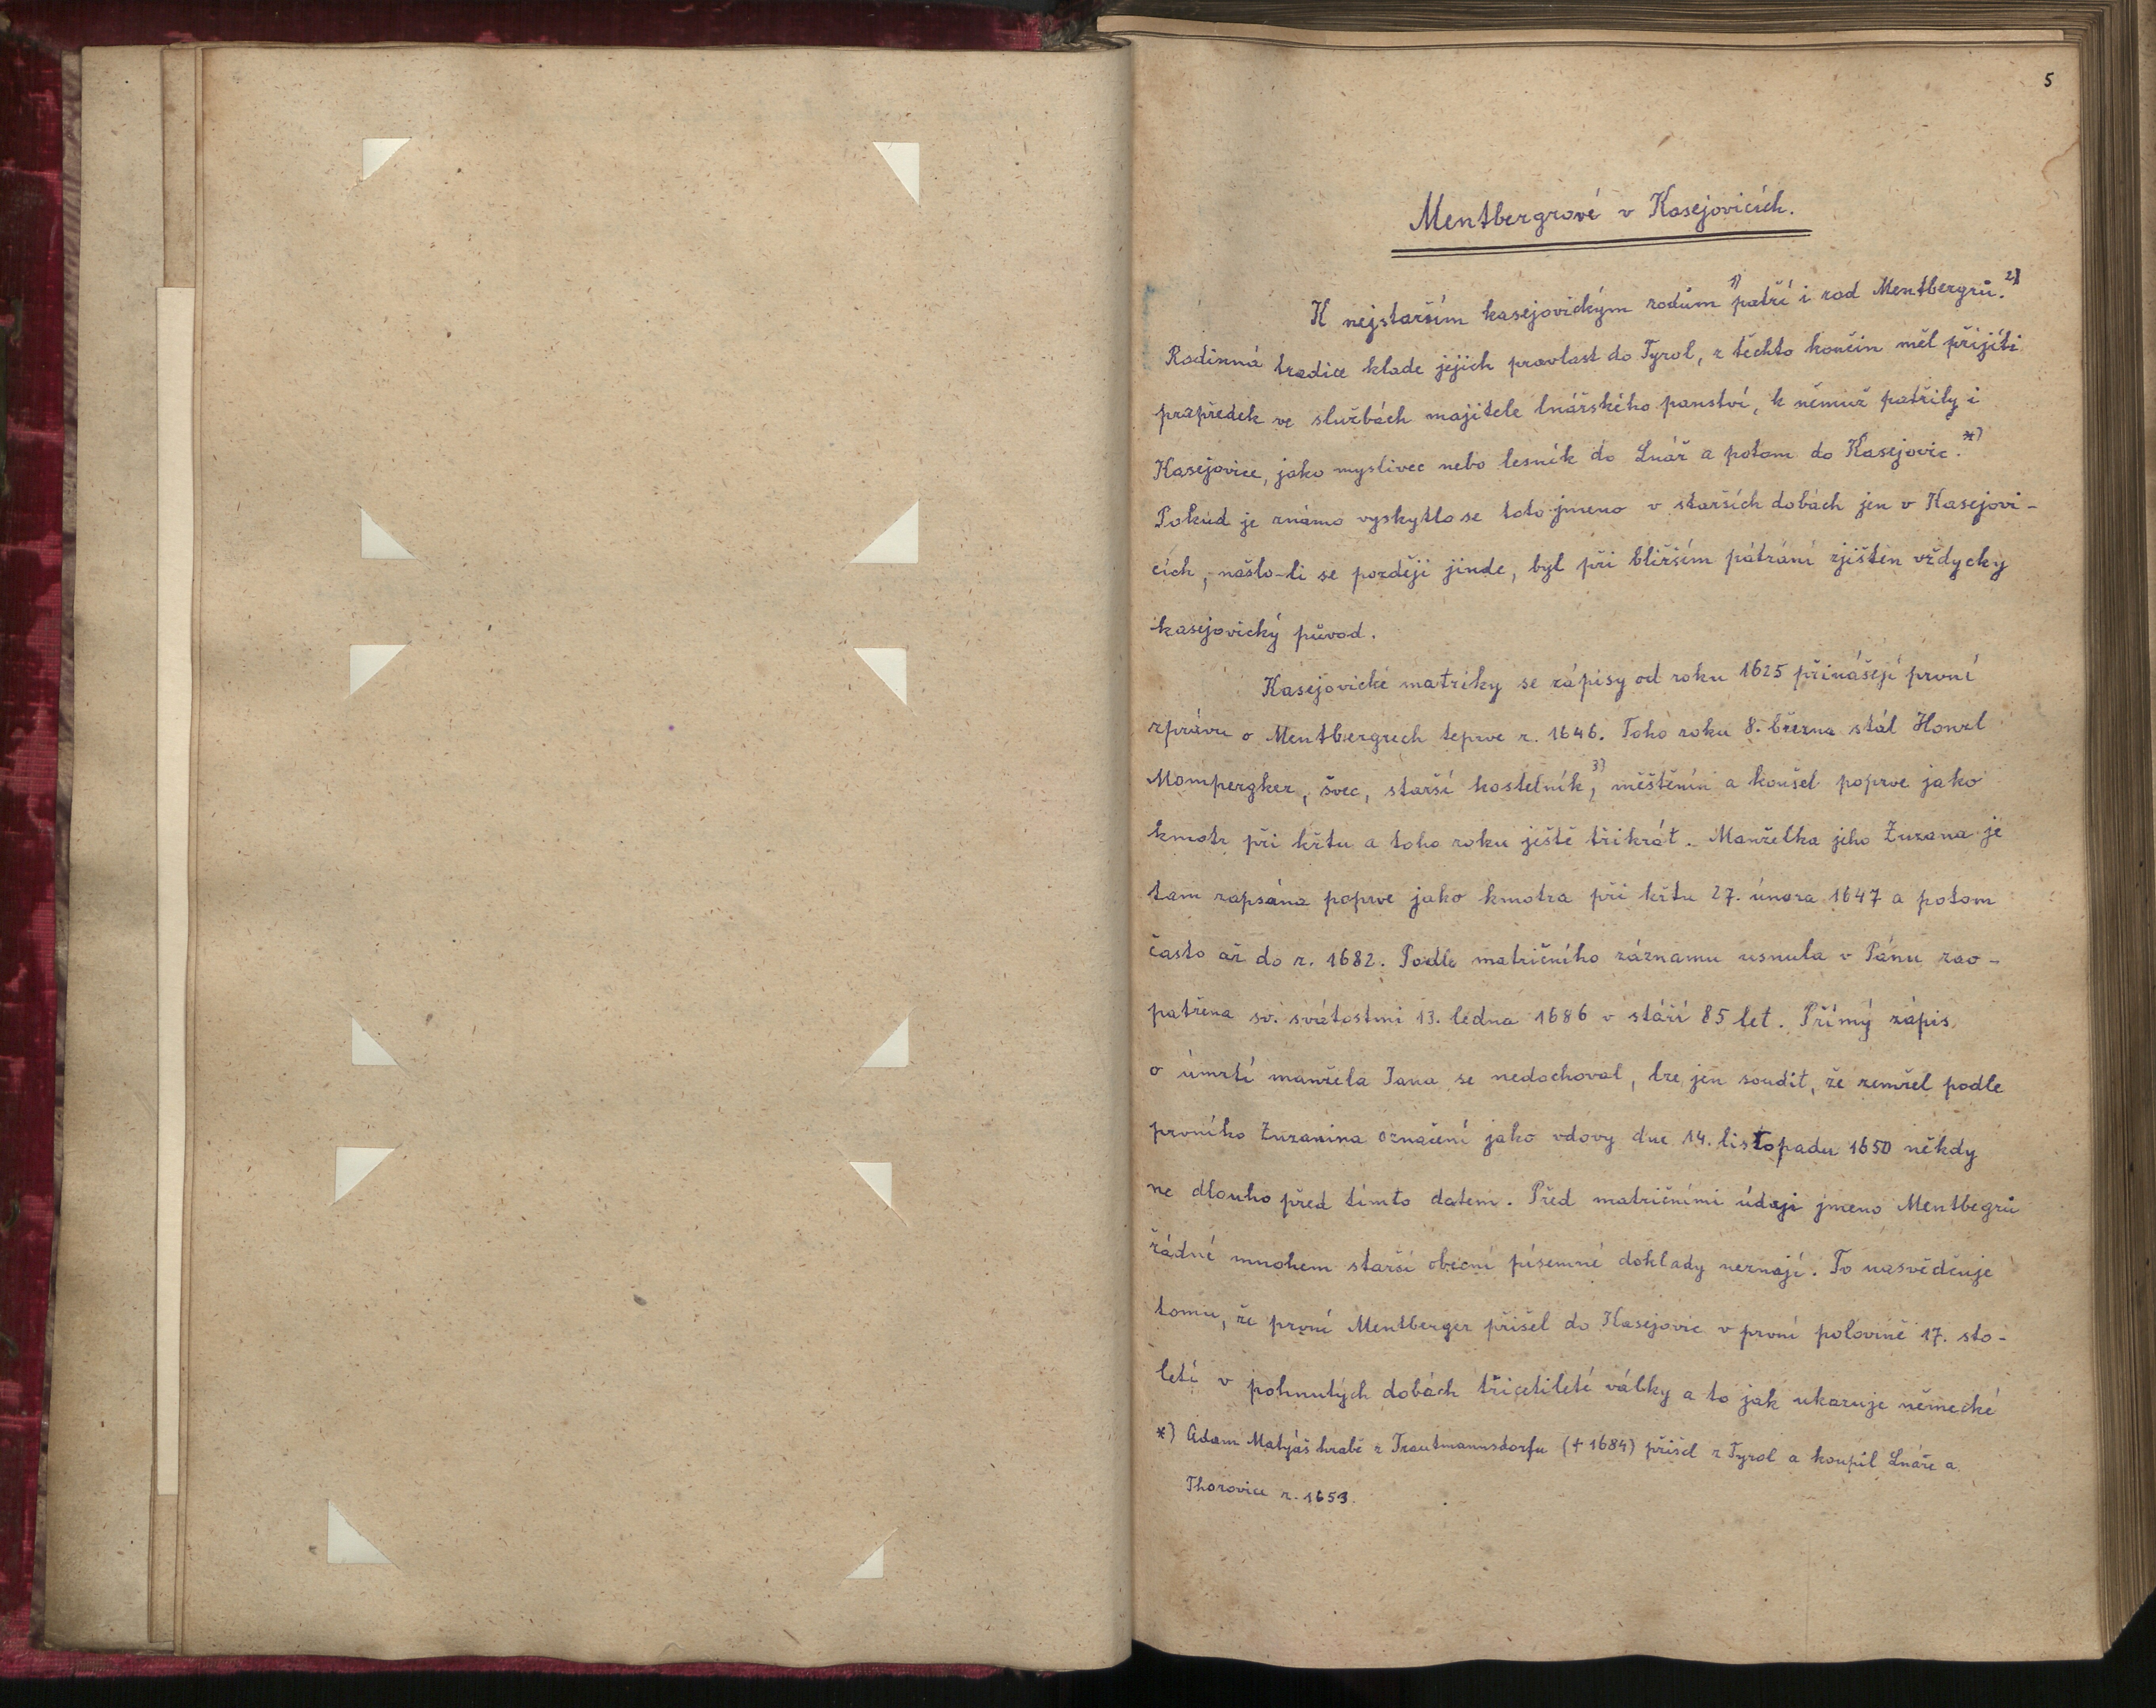 5
Mentbergrové v Kasejovicích.
K nejstarším kasejovickým rodům 1) patří i rod Mentbergrů. 2)
Rodinná tradice klade jejich pravlast do Tyrol, z těchto končin měl přijíti
prapředek ve službách majitele lnářského panství, k němuž patřily i
Kasejovice, jako myslivec nebo lesník do Lnář a potom do Kasejovic. *)
Pokud je známo vyskytlo se toto jmeno v starších dobách jen v Kasejovi-
cích, našlo-li se později jinde, byl při bližším pátrání zjištěn vždycky
kasejovický původ.
Kasejovické matriky se zápisy od roku 1625 přinášejí první
zprávu o Mentbergrech teprve r. 1646. Toho roku 8. března stál Honzl
Mompergker, švec, starší kostelník, 3) měštěnín a konšel poprve jako
kmotr při křtu a toho roku ještě třikrát. Manželka jeho Zuzana je
tam zapsána poprve jako kmotra při křtu 27. února 1647 a potom
často až do r. 1682. Podle matričního záznamu usnula v Pánu zao-
patřena sv. svátostmi 13. ledna 1686 v stáří 85 let. Přímý zápis
o úmrtí manžela Jana se nedochoval, lze jen soudit, že zemřel podle
prvního Zuzanina označení jako vdovy dne 14. listopadu 1650 někdy
ne dlouho před tímto datem. Před matričními údaji jmeno Mentbegrů
žádné mnohem starší obecní písemné doklady neznají. To nasvědčuje
tomu, že první Mentberger přišel do Kasejovic v první polovině 17. sto-
letí v pohnutých dobách třicetileté války a to jak ukazuje německé
*) Adam Matyáš hrabě z Trautmannsdorfu († 1684) přišel z Tyrol a koupil Lnáře a
Thorovice r. 1653.